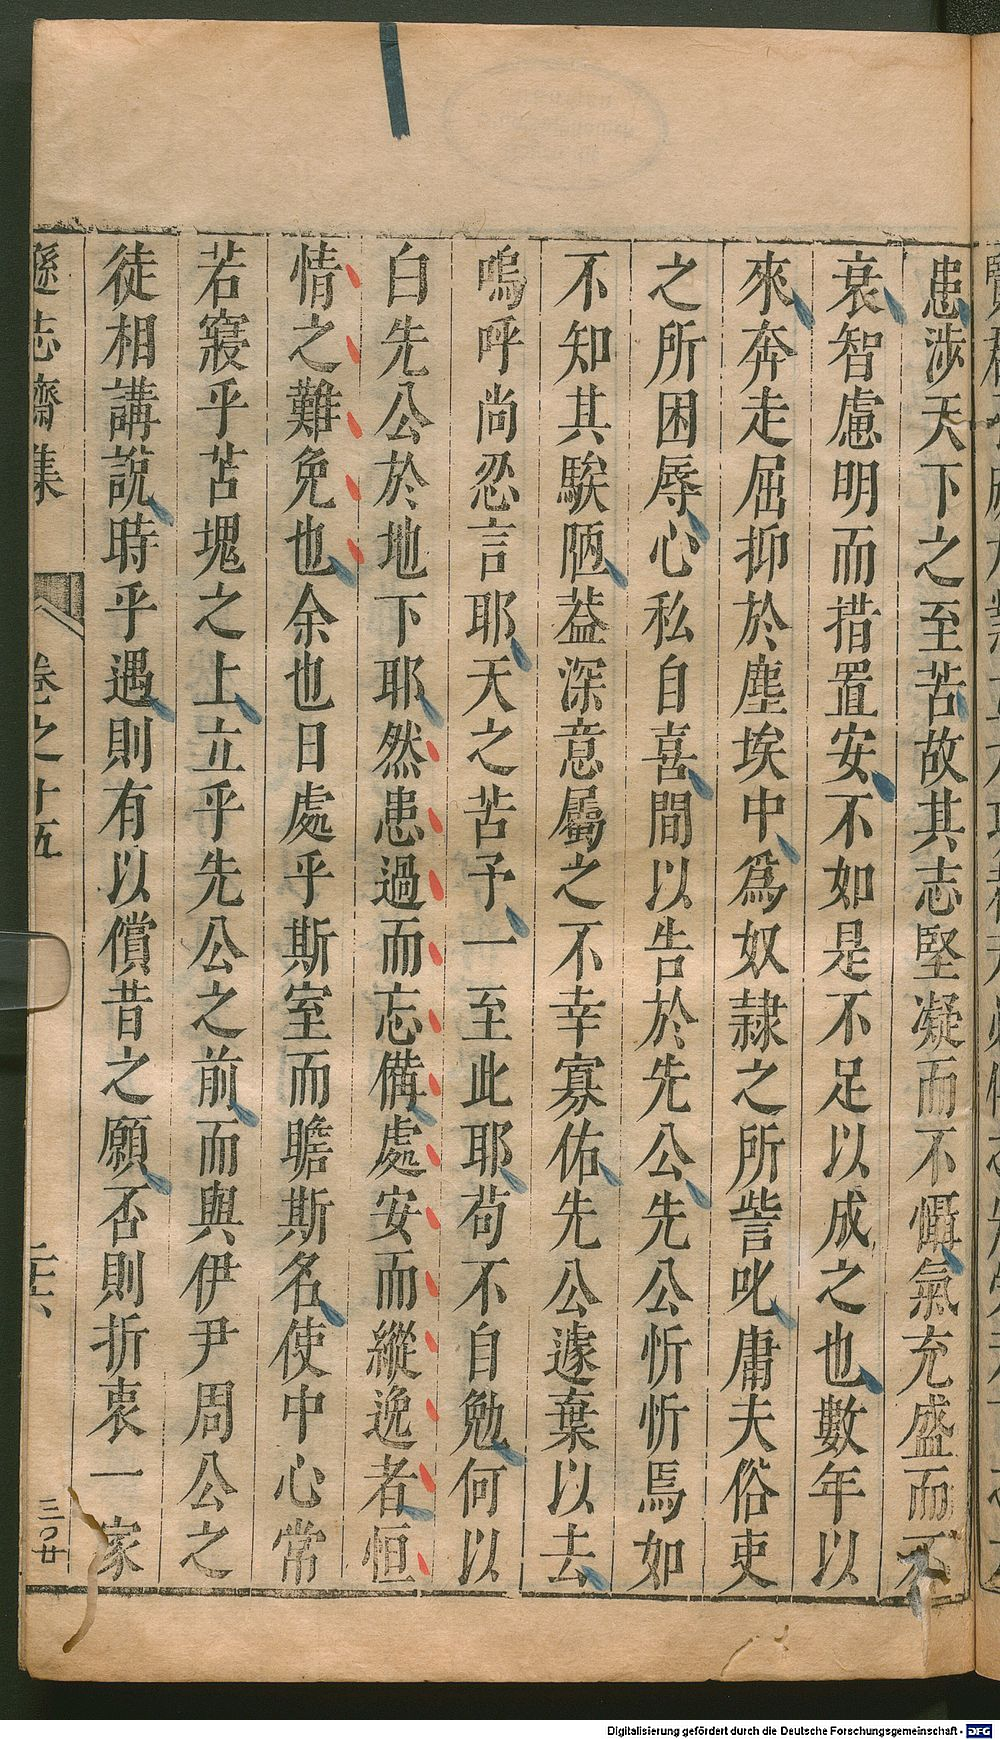 患涉天下之至苦故其志堅凝而不懾氣充盛而不
衰智慮明而措置安不如是不足以成之也數年以
來奔走屈抑於塵埃中為奴隸之所訾叱庸夫俗吏
之所困辱心私自喜間以告於先公先公忻忻焉如
不知其騃陋葢深意屬之不幸寡佑先公遽棄以去
嗚呼尚忍言耶天之苦予一至此耶苟不自勉何以
白先公於地下耶然患過而忘備處安而縱逸者恒
情之難免也余也日處乎斯室而瞻斯名使中心常
若寢乎苫塊之上立乎先公之前而與伊尹周公之
徒相講說時乎遇則有以償昔之願否則折衷一家
遜志齋集 卷之十五 二十六 三〇廿
Digitalisierung gefördert durch die Deutsche Forschungsgemeinschaft - DFG